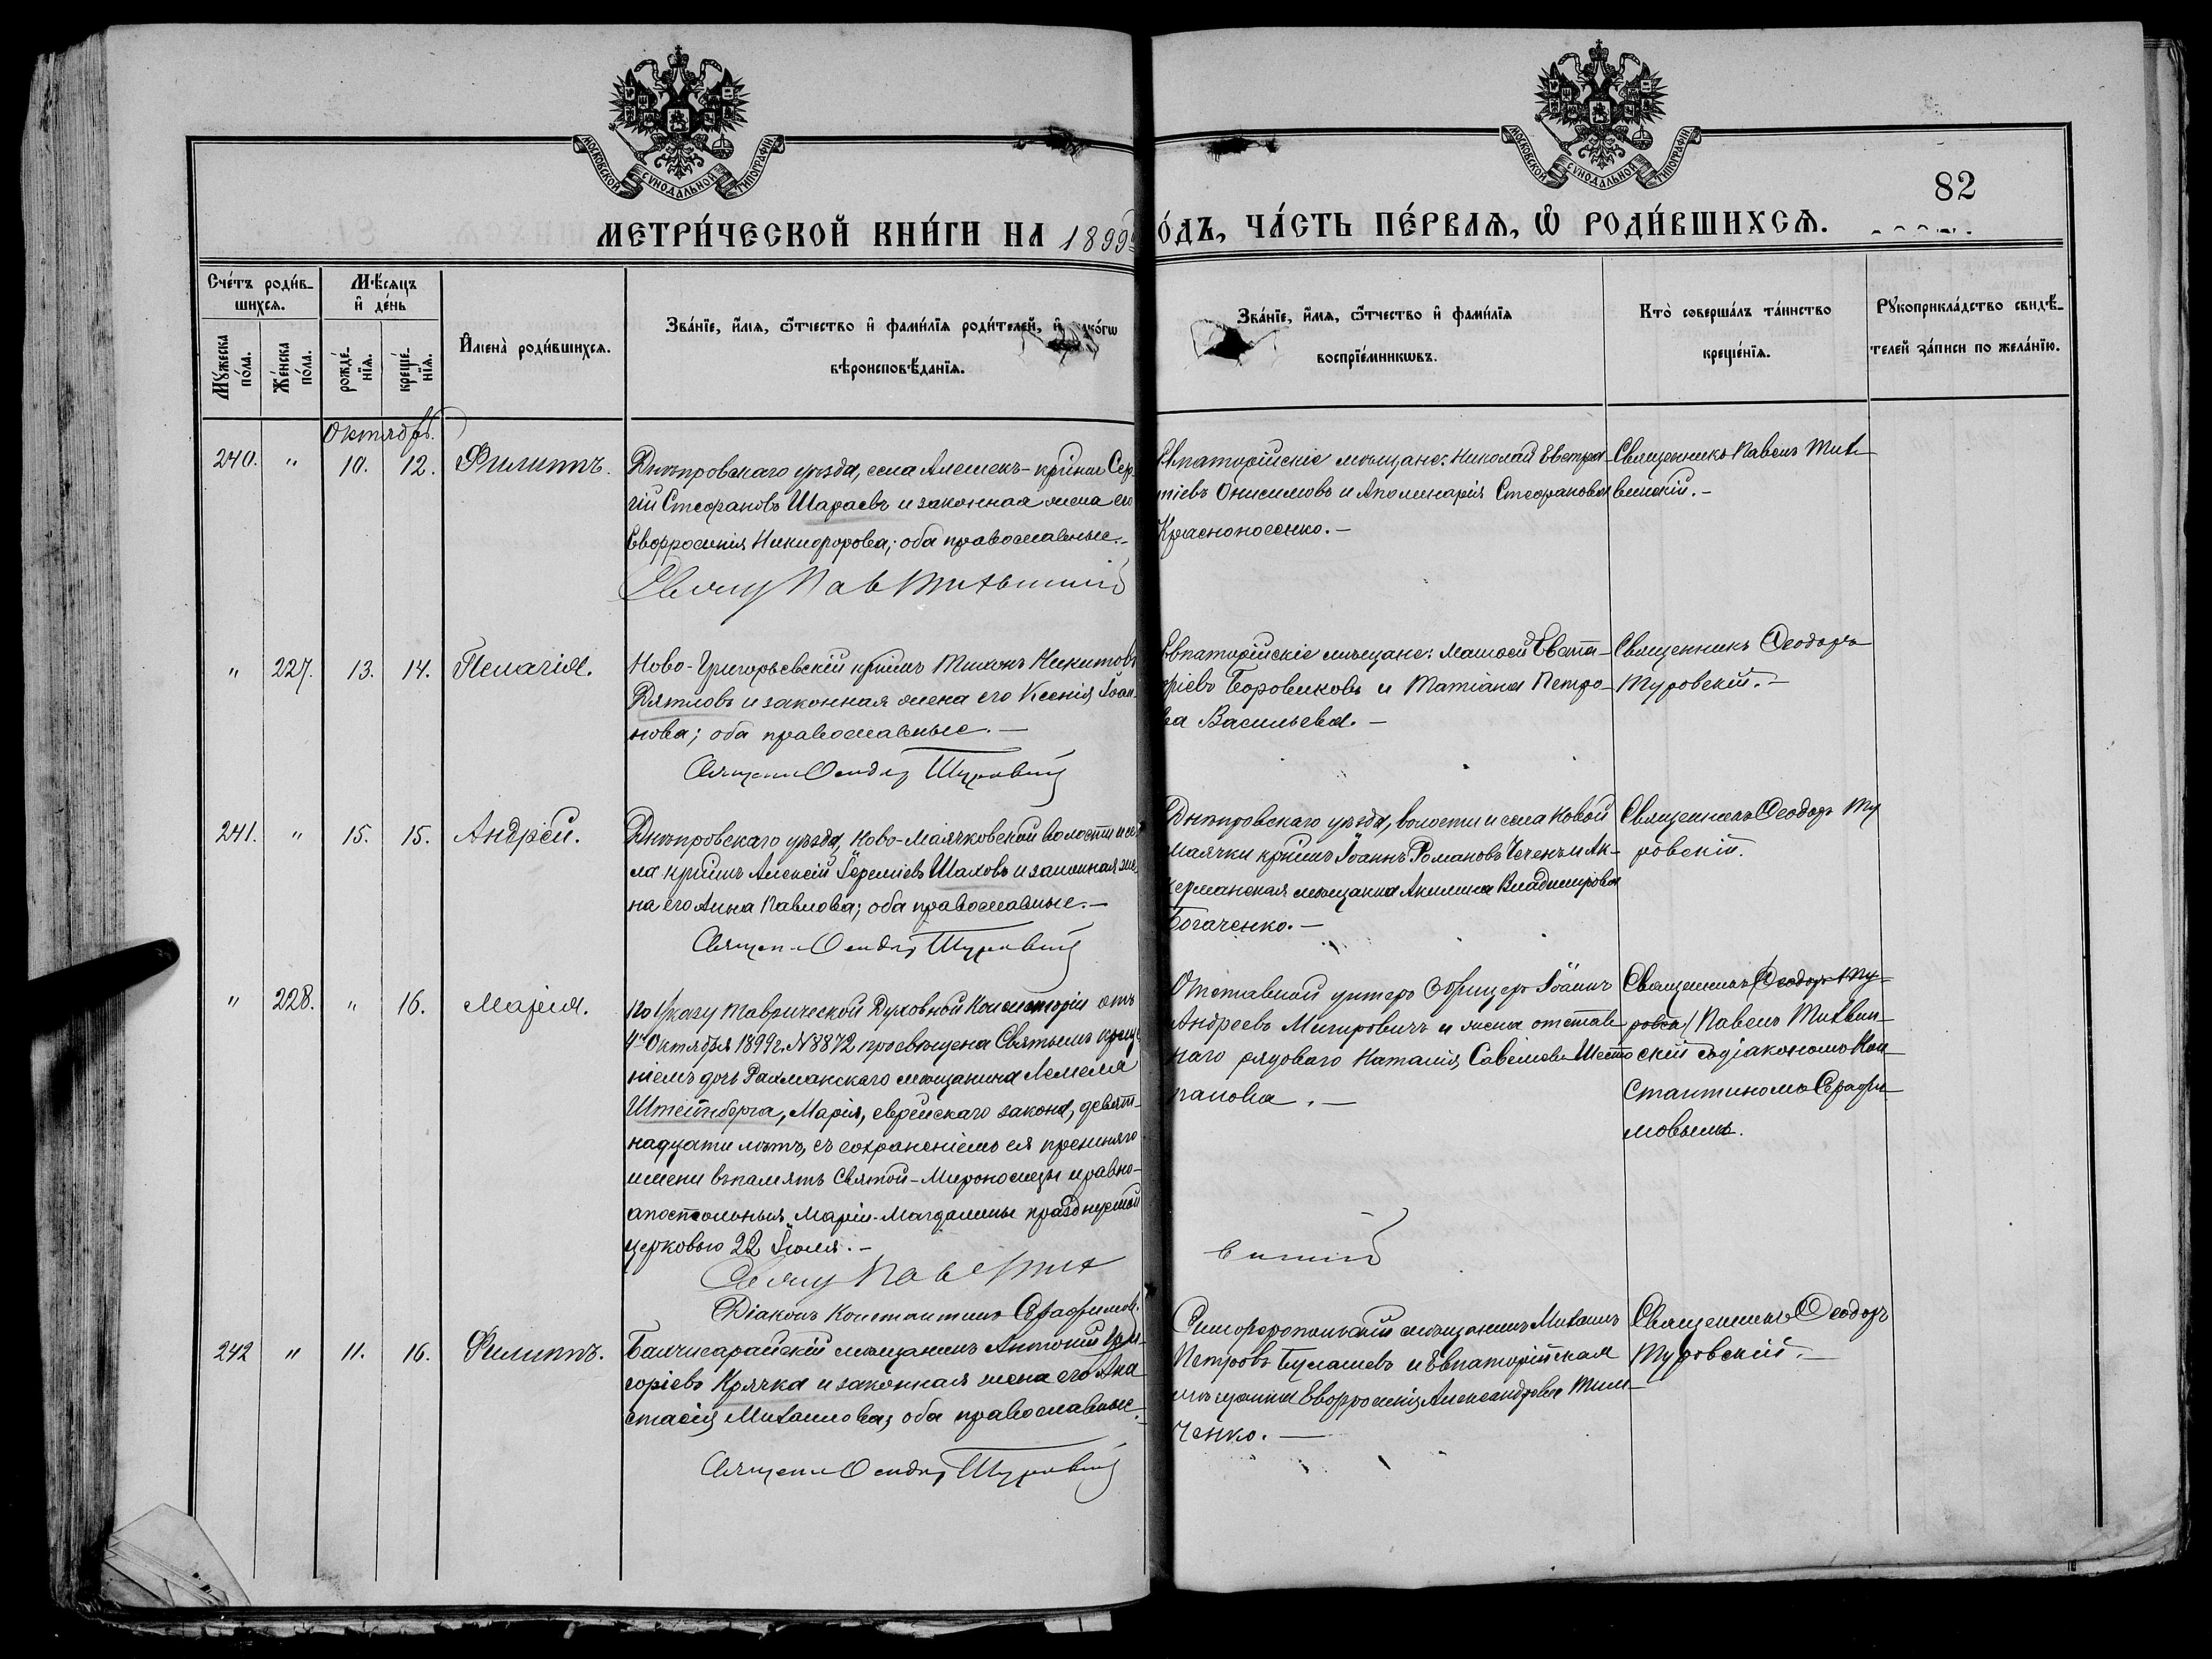 МОСКОВСКОЙ СѴНОДАЛЬНОЙ ТИПОГРАФІИ
МОСКОВСКОЙ СѴНОДАЛЬНОЙ ТИПОГРАФІИ
82
МЕТРИ́ЧЕСКОЙ КНИ́ГИ НА 1899й
О́ДЪ, ЧА́СТЬ ПЕ́РВАѦ, Ѿ РОДИ́ВШИХСѦ.
Сче́тъ роди́в-
шихсѧ.
Мѣ́сѧцъ
и҆ де́нь
Мꙋ́жеска
по́ла.
Же́нска
по́ла.
рожде́-
нїѧ.
креще́-
нїѧ.
И҆мена̀ роди́вшихсѧ.
Зва́нїе, и҆́мѧ, ѻ҆́тчество и҆ фами́лїѧ роди́телей, и҆ како́гѡ
вѣроисповѣ́данїѧ.
Зва́нїе, и҆́мѧ, ѻ҆́тчество и҆ фами́лїѧ
воспрїе́мникѡвъ.
Кто̀ соверша́лъ та́инство
креще́нїѧ.
Рꙋкоприкла́дство свидѣ́-
телей за́писи по жела́нїю.
Октябрь.
240. " 10. 12. Филиппъ.
Днѣпровскаго уѣзда, села Алешекъ - крѣнинъ Сер-
гій Стефановъ Шараевъ и законная жена его
Евфросинія Никифорова; оба православные.-
Свящ Пав Тихвинскій
Евпаторійскіе мѣщане: Николай Евстра-
тіевъ Онисимовъ и Аполинарія Стефанова
Красноносенко.-
Священникъ Павелъ Тих-
винскій.-
" 227. 13. 14. Пелагія.
Ново-Григорьевскій крнинъ Тихонъ Никитовъ
Дятловъ и законная жена его Ксенія Іоан-
нова; оба православные.-
Священ Феодоръ Туровскій
Евпаторійскіе мѣщане: Матфей Евста-
фіевъ Боровиковъ и Татіана Петро-
ва Васильева.-
Священникъ Ѳеодоръ
Туровскій.-
241. " 15. 15. Андрей.
Днѣпровскаго уѣзда, Ново-Маячковской волости и се-
ла крнинъ Алексій Іереміевъ Шаховъ и законная же-
на его Анна Павлова; оба православные.-
Священ Феодоръ Туровскій
Днѣпровскаго уѣзда, волости и села Новой
Маячки крнинъ Іоаннъ Романовъ Чеченъ и Ак-
керманская мѣщанка Акилина Владимірова
Богаченко.-
Священникъ Ѳеодоръ Ту
ровскій.
" 228. " 16. Марія.
По Указу Таврической Духовной Консисторіи отъ
4го Октября 1899г. №8872 просвѣщена Святымъ креще-
ніемъ дочь Рахманскаго мѣщанина Лемеля
Штейнберга, Марія, еврейскаго закона, девят-
надцати лѣтъ, съ сохраненіемъ ея прежняго
имени въ память Святой-Мироносицы и равно-
апостольныя Маріи-Магдалины празднуемой
церковью 22 Іюля.-
Свящ Павел Тих
винскій
Діаконъ Константинъ Серафимов.
Отставной унтеръ Офицеръ Іоаннъ
Андреевъ Мигировичъ и жена отстав-
наго рядового Наталія Савелова Шесто
палова.-
Священникъ Ѳеодоръ Ту-
ровск/ Павелъ Тихвин-
скій съ діакономъ Кон-
стантиномъ Серафи-
мовымъ.
242 " 11. 16. Филиппъ.
Бахчисарайскій мѣщанинъ Антоній Гри-
горіевъ Крячка и законная жена его Ана
стасія Михаилова; оба православные.-
Священ Феодоръ Туровскій
Симферопольскій мѣщанинъ Михаилъ
Петровъ Булашевъ и Евпаторійская
мѣщанка Евфросинія Александрова Тим-
ченко.-
Священникъ Ѳеодоръ
Туровскій.-